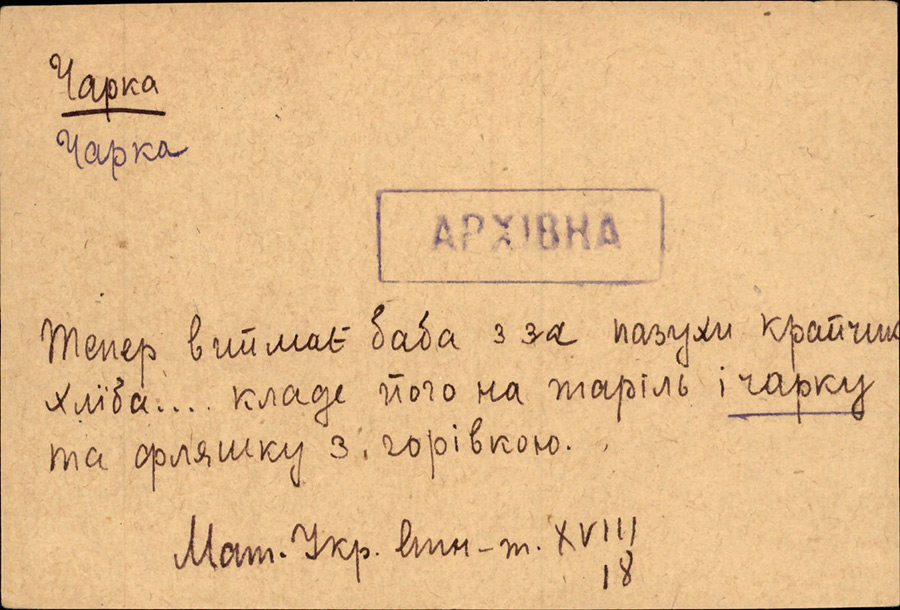 Чарка
Чарка
АРХІВНА
Тепер виймає баба з за пазухи крайчик
хліба.... кладе його на таріль і чарку
та фляшку з горівкою.
Мат. Укр. етн-т. XVIII
18